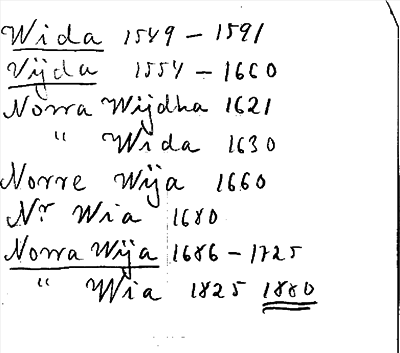 Wida 1549 - 1591
Vijda 1554 - 1660
Norra Wijdha 1621
" Wida 1630
Norre Wija 1660
Nr Wia 1680
Norra Wija 1686 - 1725
" Wia 1825 1880